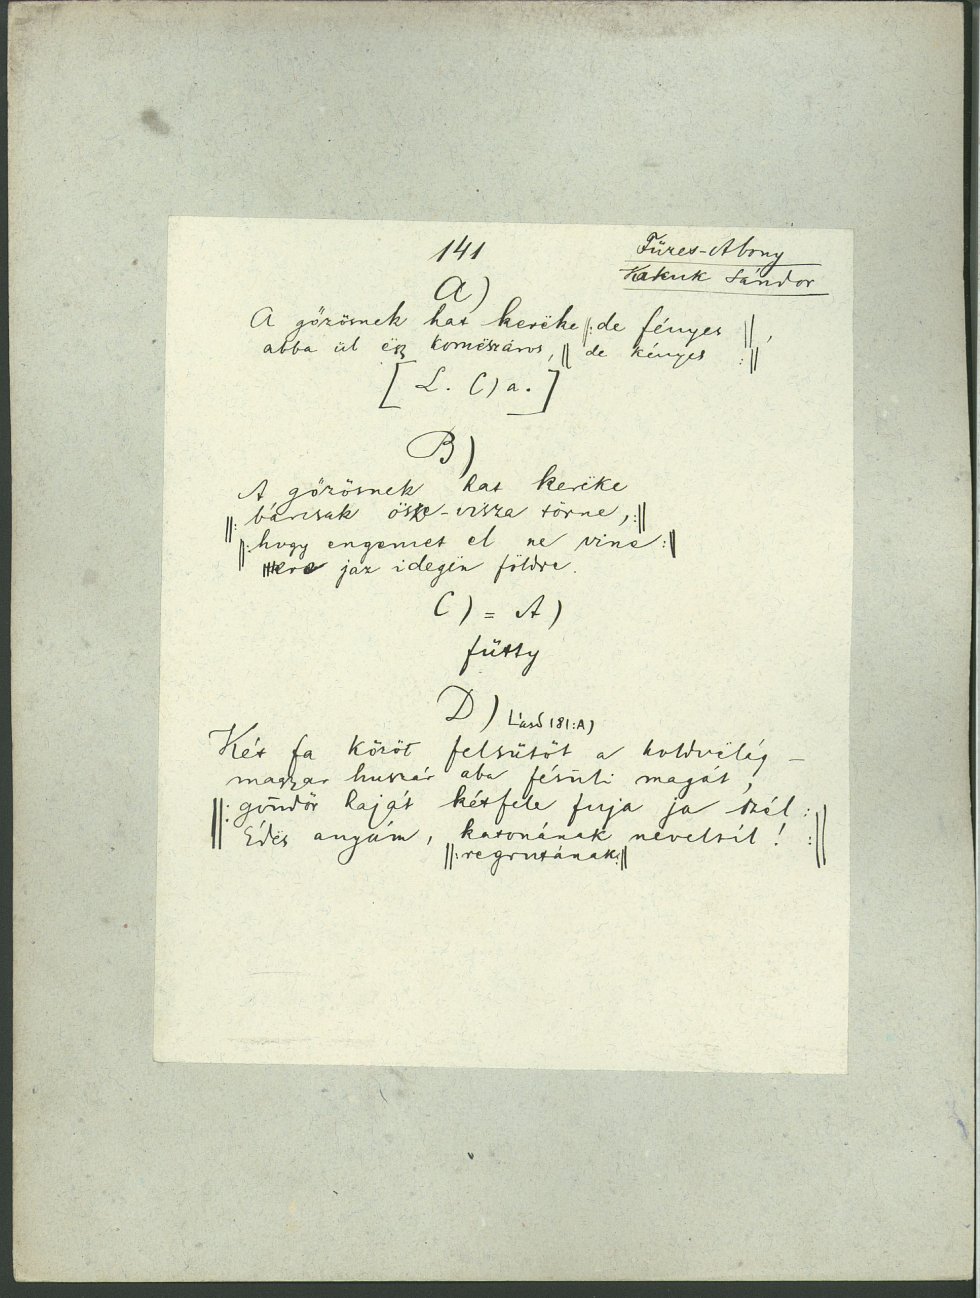 141
Füzes-Abony
Kakuk Sándor
A)
A gőzösnek hat keréke ‖: de fényes ‖,
abba ül ëgy komëszáros, ‖ de kényes :‖
[L. C) a.]
B)
A gőzösnek hat keréke
‖: bárcsak ösze-visza törne, :‖
‖: hogy engemet el ne vine :‖
jaz idegën földre.
C) = A)
fütty
D) Lásd 181:A)
Két fa között felsütöt a holdvilág –
magyar huszár aba fésüli magát,
‖: göndör haját kétfele fujja ja szél :
Édës anyám, katonának neveltél! :‖
‖: regrutának :‖